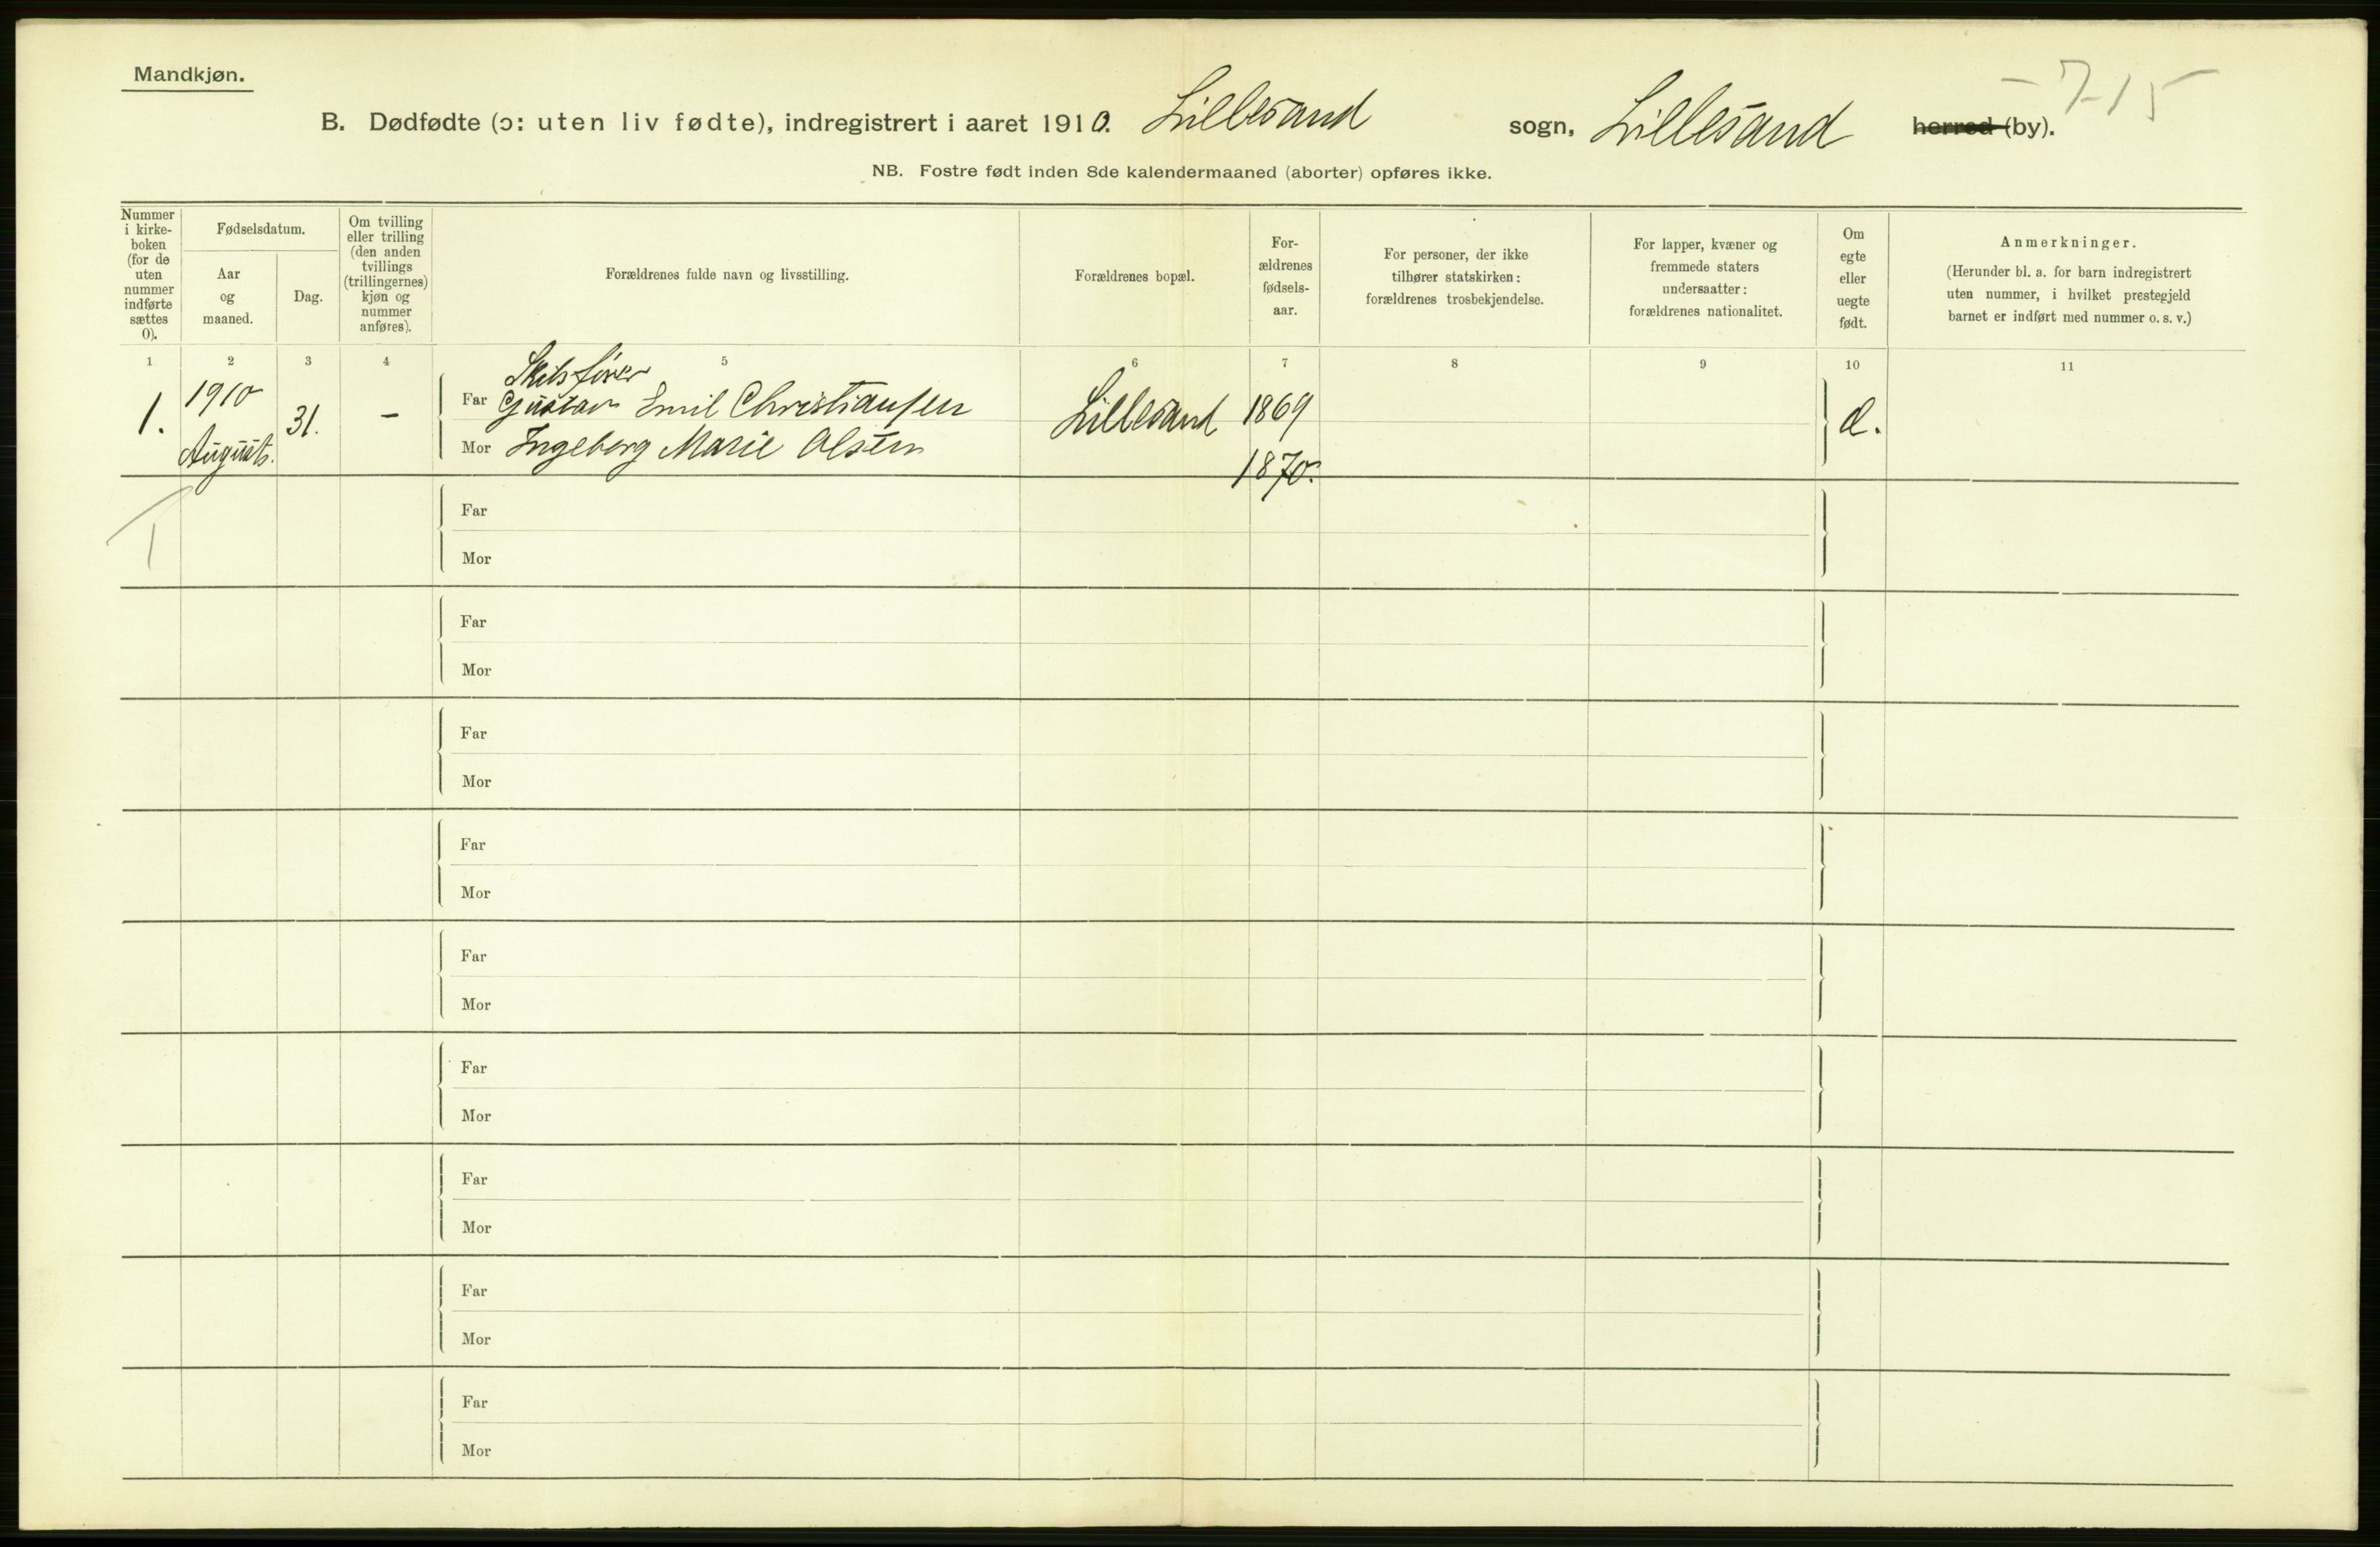 Mandkjøn.
- 7-15
B. Dødfødte (ɔ: uten liv fødte), indregistrert i aaret 1910. Lillesand sogn, Lillesand herred (by).
NB. Fostre født inden 8de kalendermaaned (aborter) opføres ikke.
Nummer
i kirke-
boken
(for de
uten
nummer
indførte
sættes
0).
Fødselsdatum.
Aar
og
maaned.
Dag.
Om tvilling
eller trilling
(den anden
tvillings
(trillingernes)
kjøn og
nummer
anføres).
Forældrenes fulde navn og livsstilling.
Forældrenes bopæl.
For-
ældrenes
fødsels-
aar.
For personer, der ikke
tilhører statskirken:
forældrenes trosbekjendelse.
For lapper, kvæner og
fremmede staters
undersaatter:
forældrenes nationalitet.
Om
egte
eller
uegte
født.
Anmerkninger.
(Herunder bl. a. for barn indregistrert
uten nummer, i hvilket prestegjeld
barnet er indført med nummer o. s. v.)
1 2 3 4 5 6 7 8 9 10 11
Skibsfører
1. 1910 31. - Far Gustav Emil Christiansen Lillesand 1869
August. Mor Ingeborg Marie Olsen 1870.
Far
Mor
Far
Mor
Far
Mor
Far
Mor
Far
Mor
Far
Mor
Far
Mor
Far
Mor
Far
Mor